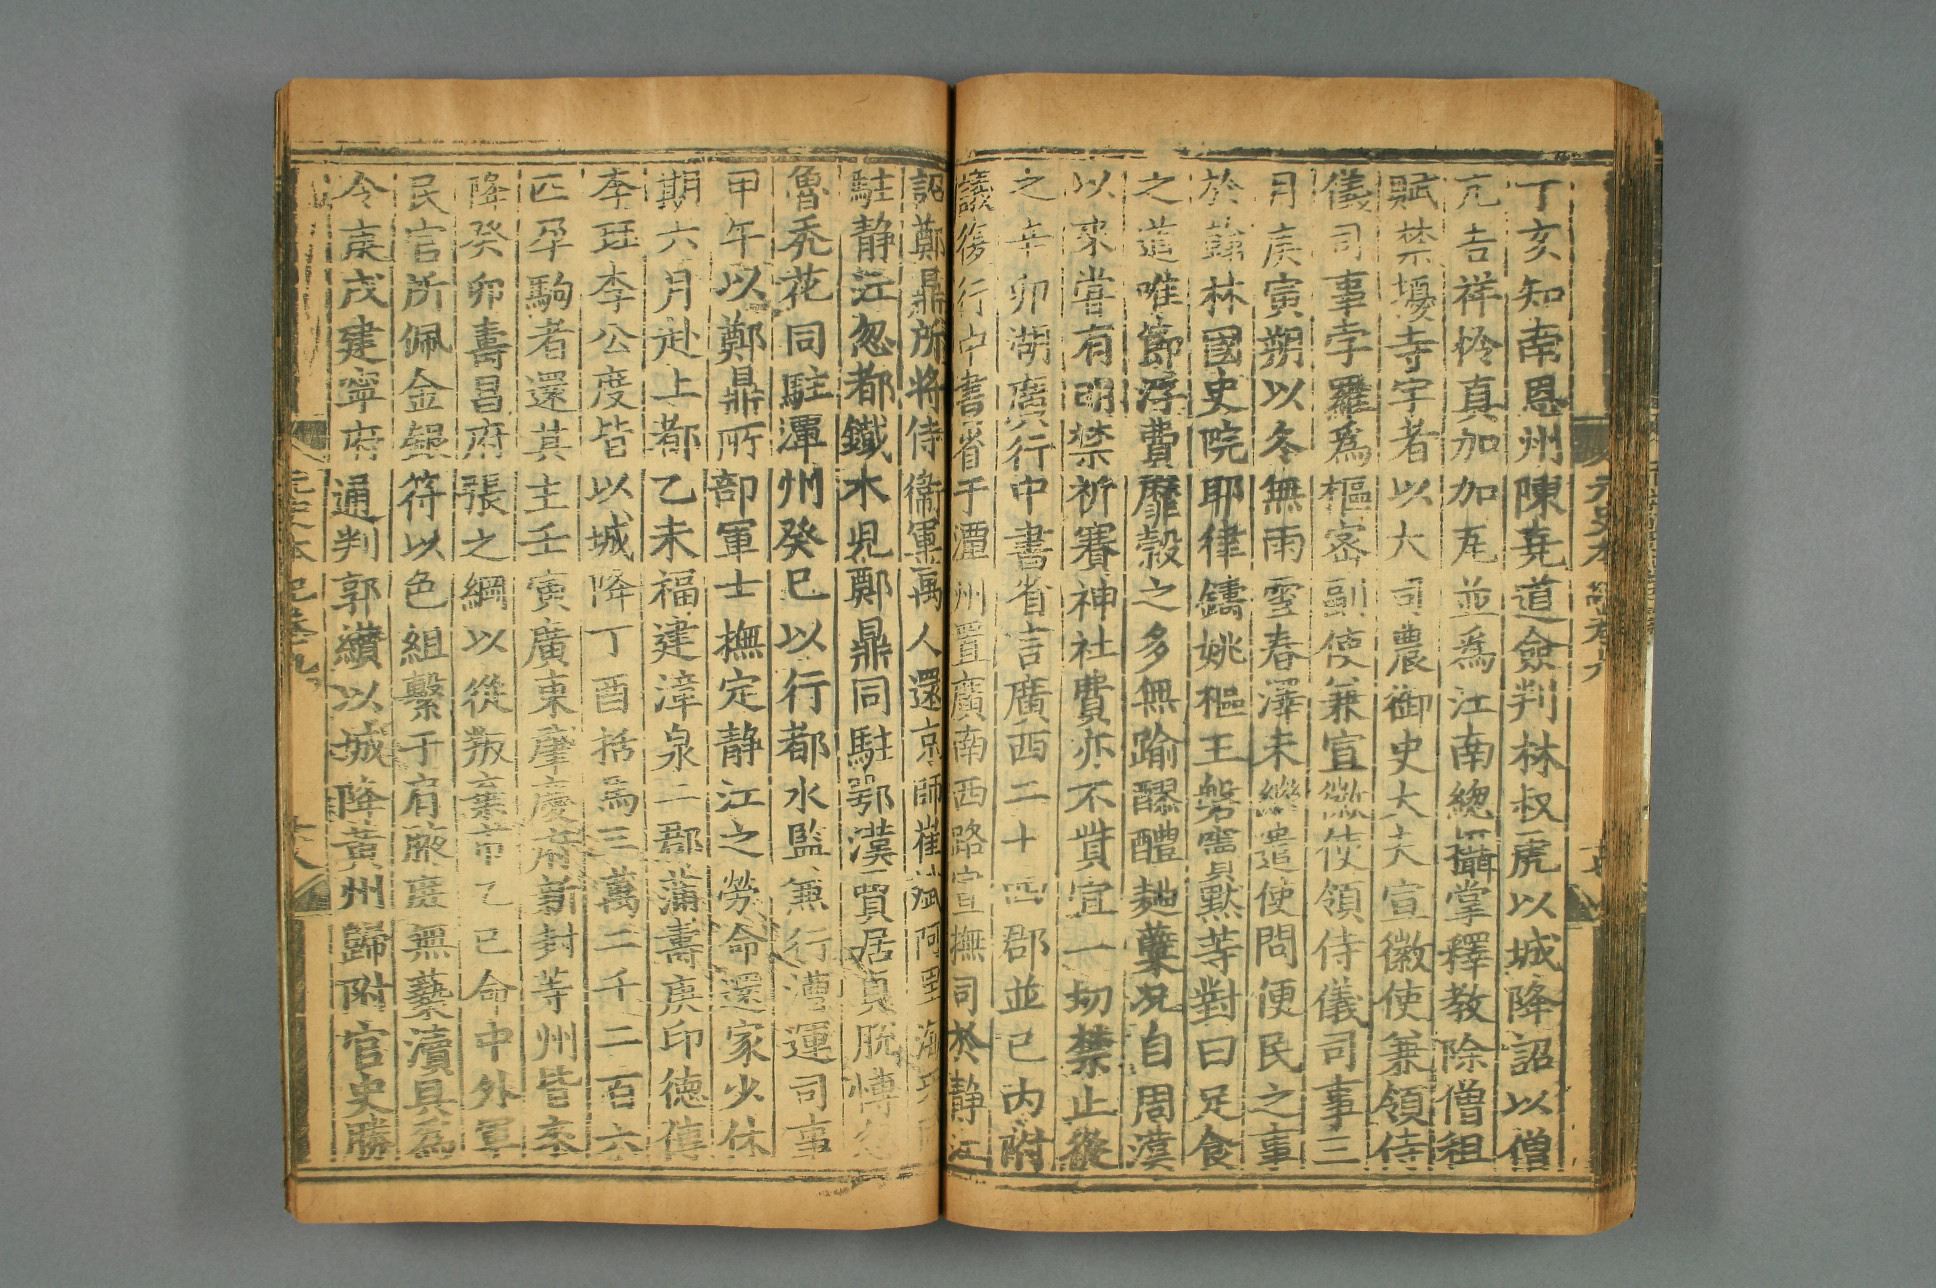 丁亥知南恩州陳堯道僉判林叔虎以城降詔以僧
亢吉祥怜真加加瓦並爲江南總攝掌釋教除僧租
賦禁擾寺宇者以大司農御史大夫宣徽使兼領侍
儀司事孛羅爲樞密副使兼宣徽使領侍儀司事三
月庚寅朔以冬無雨雪春澤未繼遣使問便民之事
於翰林國史院耶律鑄姚樞王磐竇默等對曰足食
之道唯節浮費靡穀之多無踰醪醴麴糵况自周漢
以來嘗有明禁祈賽神社費亦不貲宜一切禁止從
之辛卯湖廣行中書省言廣西二十四郡並已内附
議復行中書省于潭州置廣南西路宣撫司於静江
詔鄭鼎所將侍衛軍萬人還京師崔斌阿里海牙
駐静江忽都鐵木兒鄭鼎同駐鄂漢賈居貞脱博
魯秃花同駐潭州癸巳以行都水監兼行漕運司事
甲午以鄭鼎所部軍士撫定静江之勞命還家少休
期六月赴上都乙未福建漳泉二郡蒲壽庚印德傅
李珏李公度皆以城降丁酉括馬三萬二千二百六
匹孕駒者還其主壬寅廣東肇慶府新封等州皆來
降癸卯壽昌府張之綱以從叛棄市乙巳命中外軍
民官所佩金銀符以色組繫于肩腋庶無褻瀆具爲
令庚戌建寧府通判郭纘以城降黄州歸附官史勝
元史本紀卷九
十八